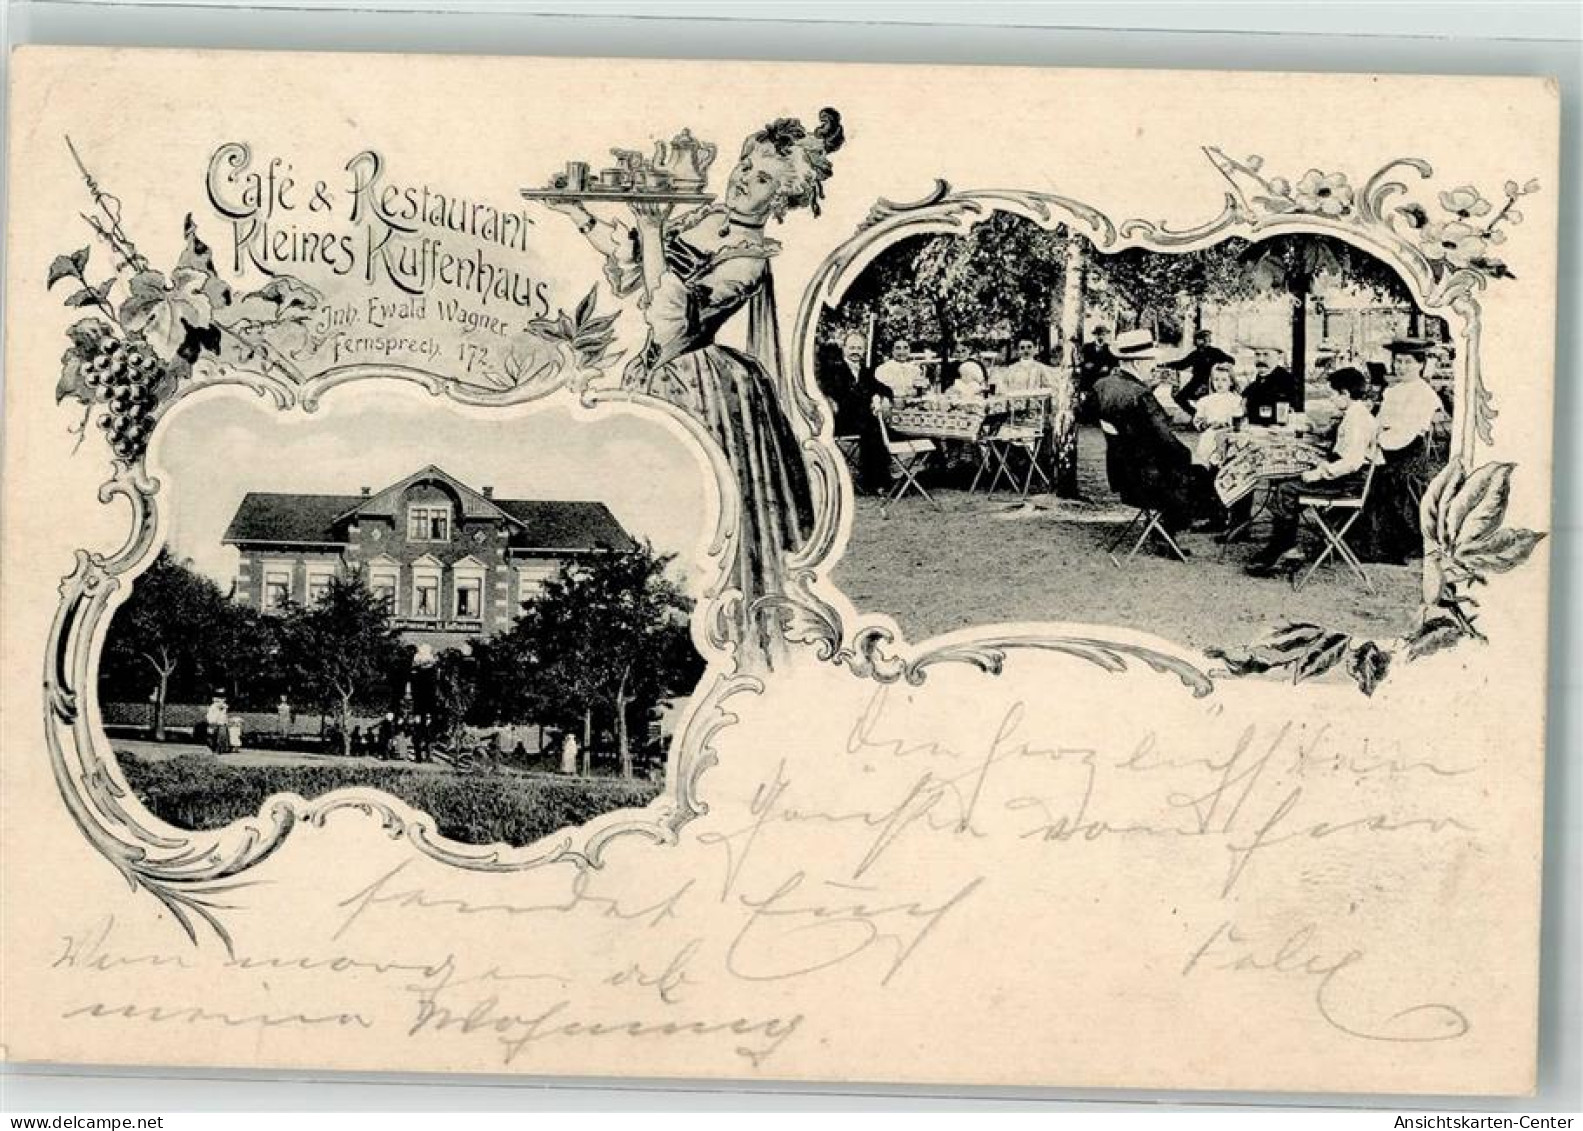 Café & Restaurant
Kleines Kuffenhaus
Inh. Ewald Wagner.
Fernsprech. 172.
Die herzlichsten
Grüße von hier
sendet Euch
Felix
Von morgen ab
meine Wohnung
www.delcampe.net
Ansichtskarten-Center